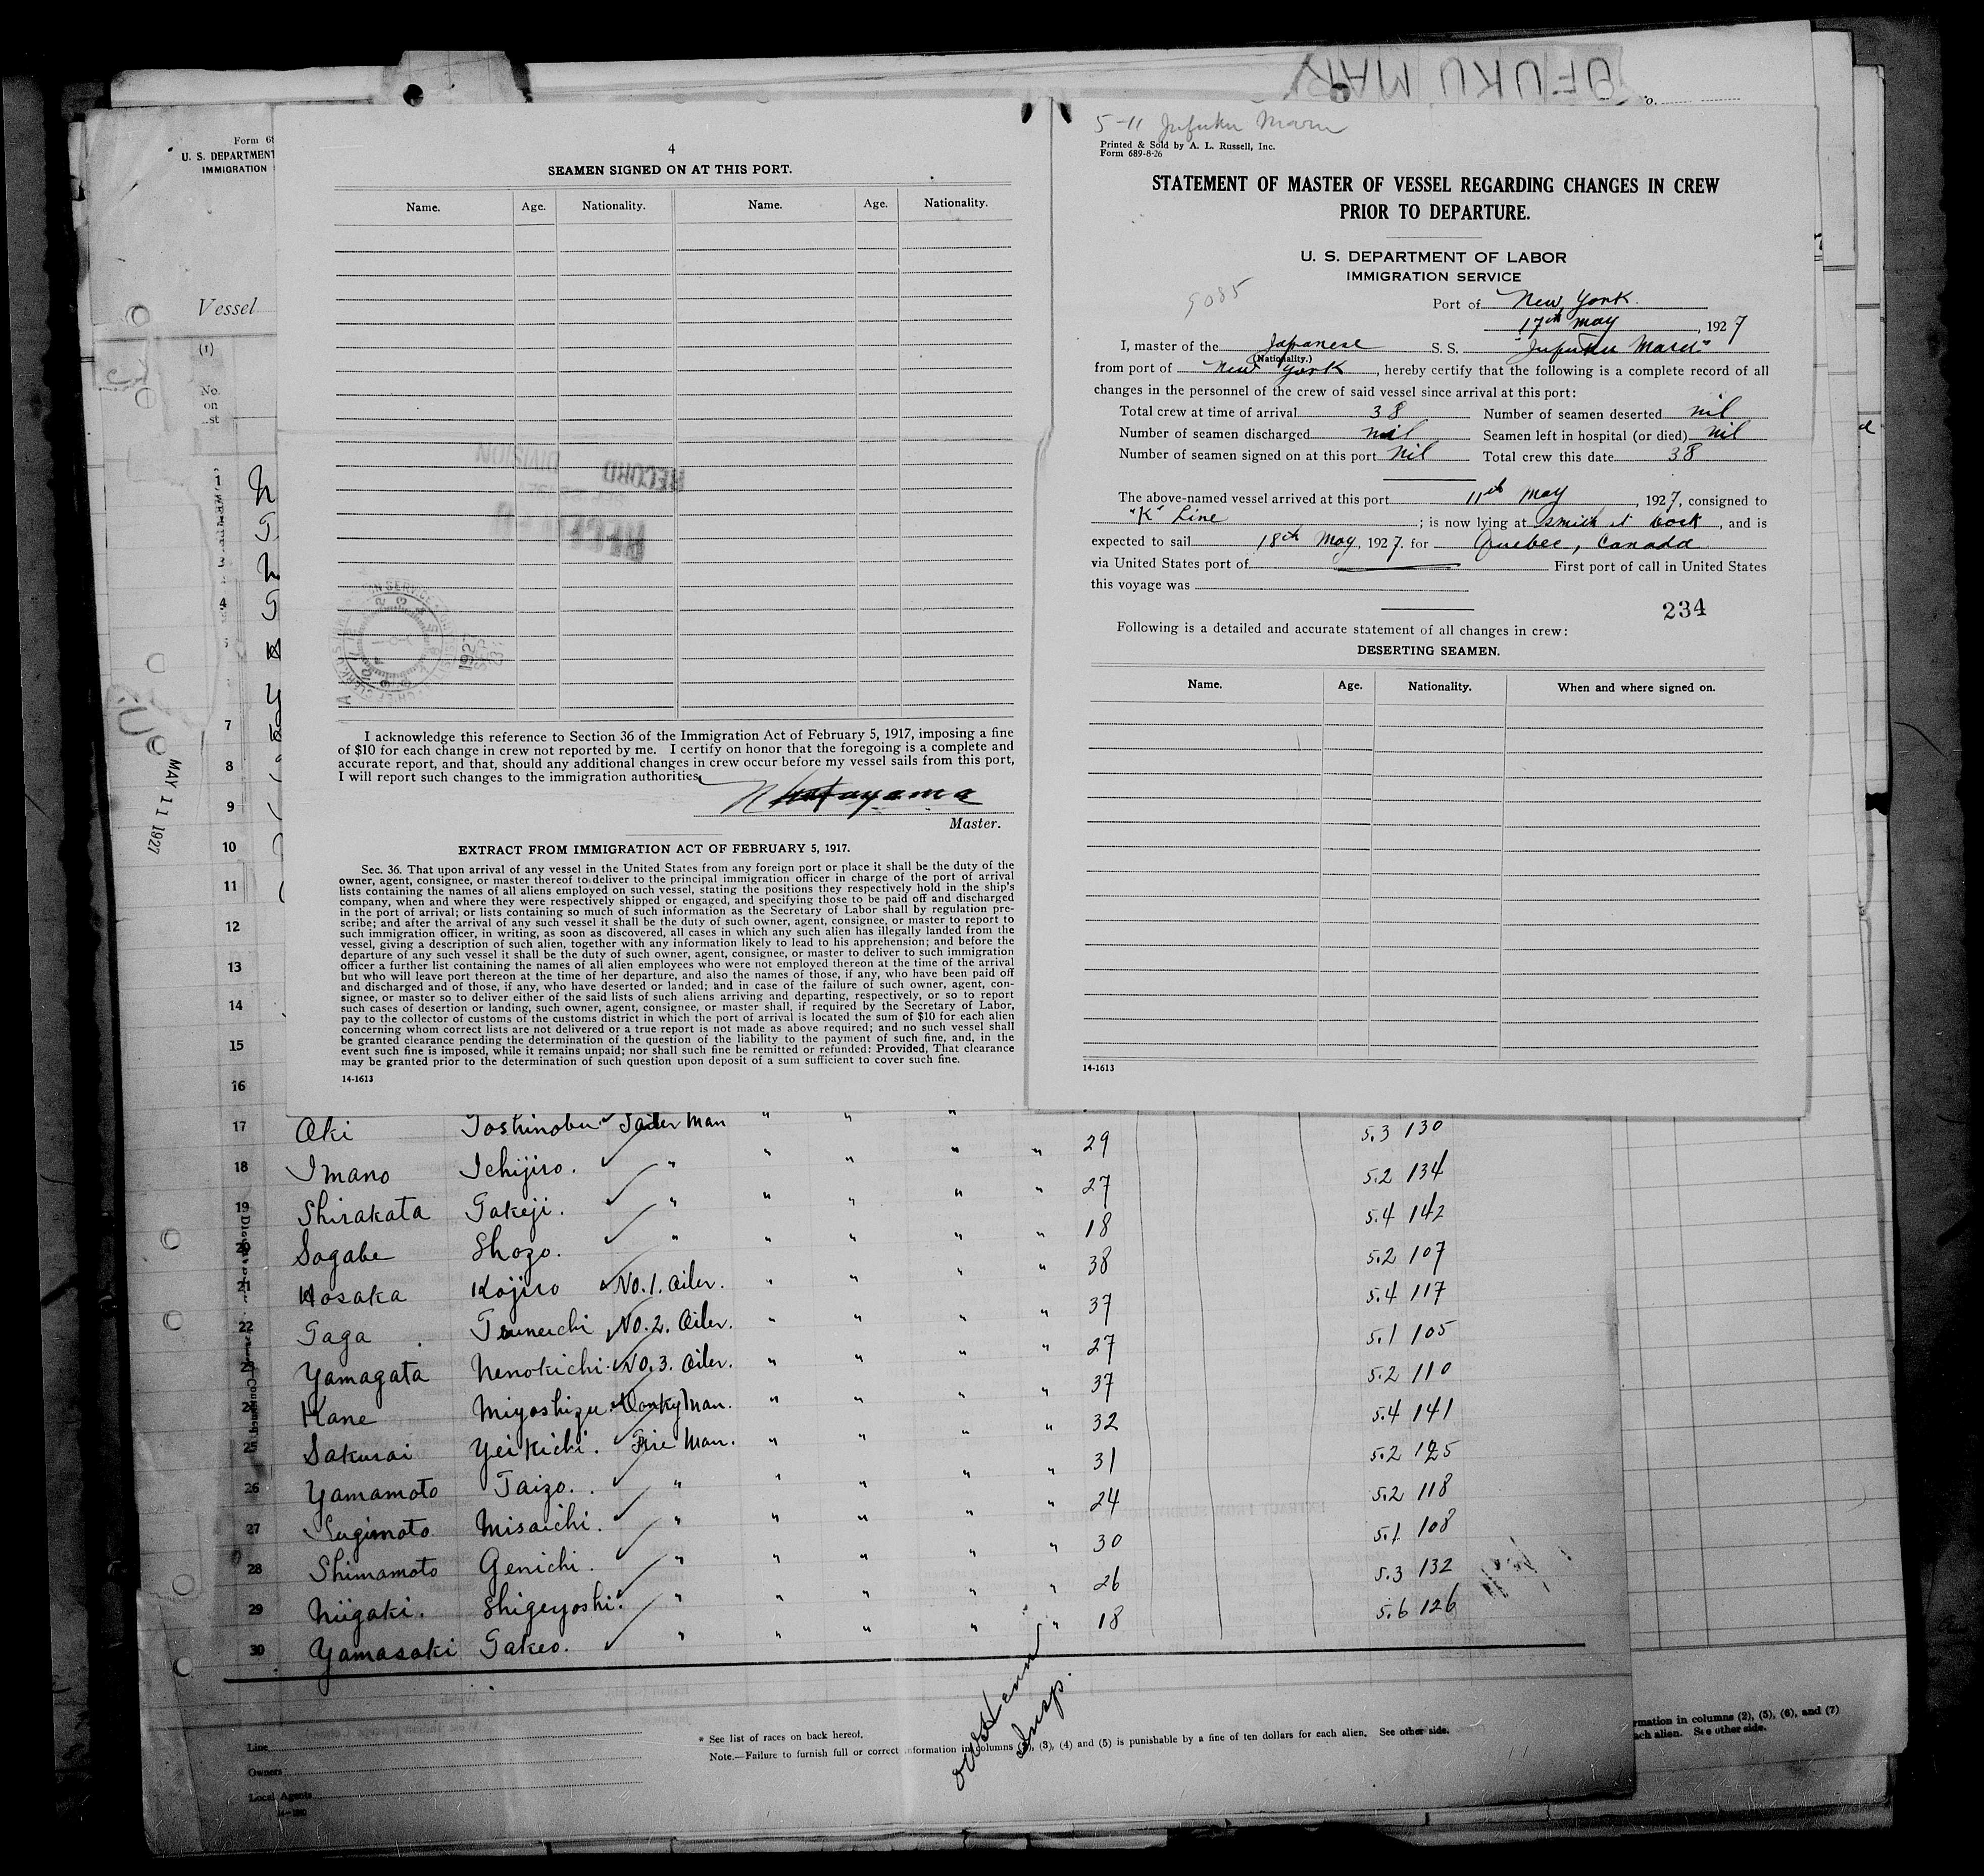 OFUKU MAR
Form 68
U. S. DEPARTMENT
IMMIGRATION
Vessel
(1)
No.
on
MAY 11 1927
1
4
7
8
9
10
11
12
13
14
15
16
4
SEAMEN SIGNED ON AT THIS PORT.
Name. Age. Nationality. Name. Age. Nationality.
RECORD DIVISION
RECEIVED
I acknowledge this reference to Section 36 of the Immigration Act of February 5, 1917, imposing a fine
of $10 for each change in crew not reported by me. I certify on honor that the foregoing is a complete and
accurate report, and that, should any additional changes in crew occur before my vessel sails from this port,
I will report such changes to the immigration authorities.
Master.
EXTRACT FROM IMMIGRATION ACT OF FEBRUARY 5, 1917.
Sec. 36. That upon arrival of any vessel in the United States from any foreign port or place it shall be the duty of the
owner, agent, consignee, or master thereof to deliver to the principal immigration officer in charge of the port of arrival
lists containing the names of all aliens employed on such vessel, stating the positions they respectively hold in the ship's
company, when and where they were respectively shipped or engaged, and specifying those to be paid off and discharged
in the port of arrival; or lists containing so much of such information as the Secretary of Labor shall by regulation pre-
scribe; and after the arrival of any such vessel it shall be the duty of such owner, agent, consignee, or master to report to
such immigration officer, in writing, as soon as discovered, all cases in which any such alien has illegally landed from the
vessel, giving a description of such alien, together with any information likely to lead to his apprehension; and before the
departure of any such vessel it shall be the duty of such owner, agent, consignee, or master to deliver to such immigration
officer a further list containing the names of all alien employees who were not employed thereon at the time of the arrival
but who will leave port thereon at the time of her departure, and also the names of those, if any, who have been paid off
and discharged and of those, if any, who have deserted or landed; and in case of the failure of such owner, agent, con-
signee, or master so to deliver either of the said lists of such aliens arriving and departing, respectively, or so to report
such cases of desertion or landing, such owner, agent, consignee, or master shall, if required by the Secretary of Labor,
pay to the collector of customs of the customs district in which the port of arrival is located the sum of $10 for each alien
concerning whom correct lists are not delivered or a true report is not made as above required; and no such vessel shall
be granted clearance pending the determination of the question of the liability to the payment of such fine, and, in the
event such fine is imposed, while it remains unpaid; nor shall such fine be remitted or refunded: Provided, That clearance
may be granted prior to the determination of such question upon deposit of a sum sufficient to cover such fine.
14-1613
5-11 Jufuku Maru
Printed & Sold by A. L. Russell, Inc.
Form 689-8-26
STATEMENT OF MASTER OF VESSEL REGARDING CHANGES IN CREW
PRIOR TO DEPARTURE.
U. S. DEPARTMENT OF LABOR
IMMIGRATION SERVICE
9085
Port of New York
17th May, 1927
I, master of the Japanese S. S. "Jufuku Maru"
(Nationality.)
from port of New York, hereby certify that the following is a complete record of all
changes in the personnel of the crew of said vessel since arrival at this port:
Total crew at time of arrival 38 Number of seamen deserted nil
Number of seamen discharged nil Seamen left in hospital (or died) nil
Number of seamen signed on at this port nil Total crew this date 38
The above-named vessel arrived at this port 11th May, 1927, consigned to
"K" Line; is now lying at Smith st Dock, and is
expected to sail 18th May, 1927. for Quebec, Canada
via United States port of First port of call in United States
this voyage was
234
Following is a detailed and accurate statement of all changes in crew:
DESERTING SEAMEN.
Name. Age. Nationality. When and where signed on.
14-1613
17 Oki Toshinobu Sailer Man " " " 29 5.3 130
18 Imano Ichijiro. " " " " " 27 5.2 134
19 Shirakata Takeji. " " " " " 18 5.4 142
20 Sogabe Shozo. " " " " " 38 5.2 107
21 Hosaka Kojiro No. 1. Oiler. " " " " 37 5.4 117
22 Taga Tsuneichi No. 2. Oiler. " " " " 27 5.1 105
23 Yamagata Nenokichi No. 3. Oiler. " " " " 37 5.2 110
24 Kane Miyoshizu Donky Man. " " " " 32 5.4 141
25 Sakurai Yeikichi. Fire Man. " " " " 31 5.2 125
26 Yamamoto Taizo. " " " " " 24 5.2 118
27 Sugimoto Misaichi. " " " " " 30 5.1 108
28 Shimamoto Genichi. " " " " " 26 5.3 132
29 Niigaki. Shigeyoshi. " " " " " 18 5.6 126
30 Yamasaki Takeo. " " " " "
Insp.
Line
Owners
Local Agents
* See list of races on back hereof.
Note.—Failure to furnish full or correct information in columns (2), (3), (4) and (5) is punishable by a fine of ten dollars for each alien. See other side.
rmation in columns (2), (5), (6), and (7)
ach alien. See other side.